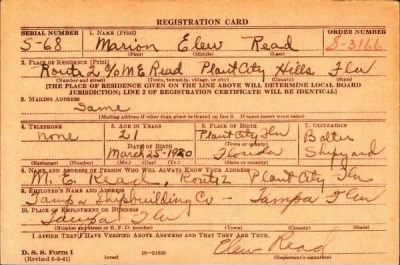 REGISTRATION CARD
SERIAL NUMBER 1. NAME (Print) ORDER NUMBER
S-68 Marion Elew Read S-3166
(First) (Middle) (Last)
2. PLACE OF RESIDENCE (Print)
Route 2 % M E Read Plant City Hills Fla
(Number and street) (Town, township, village, or city) (County) (State)
[THE PLACE OF RESIDENCE GIVEN ON THE LINE ABOVE WILL DETERMINE LOCAL BOARD
JURISDICTION; LINE 2 OF REGISTRATION CERTIFICATE WILL BE IDENTICAL]
3. MAILING ADDRESS
Same
[Mailing address if other than place indicated on line 2. If same insert word same]
4. TELEPHONE 5. AGE IN YEARS 6. PLACE OF BIRTH 7. OCCUPATION
none 21 Plant City Fla
DATE OF BIRTH (Town or county)
March 25-1920 Florida Shipyard
(Exchange) (Number) (Mo.) (Day) (Yr.) (State or country)
8. NAME AND ADDRESS OF PERSON WHO WILL ALWAYS KNOW YOUR ADDRESS
M. E. Read, Route 2 Plant City Fla
9. EMPLOYER'S NAME AND ADDRESS
Tampa Shipbuilding Co - Tampa Fla
10. PLACE OF EMPLOYMENT OR BUSINESS
Tampa Fla
(Number and street or R. F. D. number) (Town) (County) (State)
I AFFIRM THAT I HAVE VERIFIED ABOVE ANSWERS AND THAT THEY ARE TRUE.
D. S. S. Form 1
(Revised 6-9-41) Elew Read